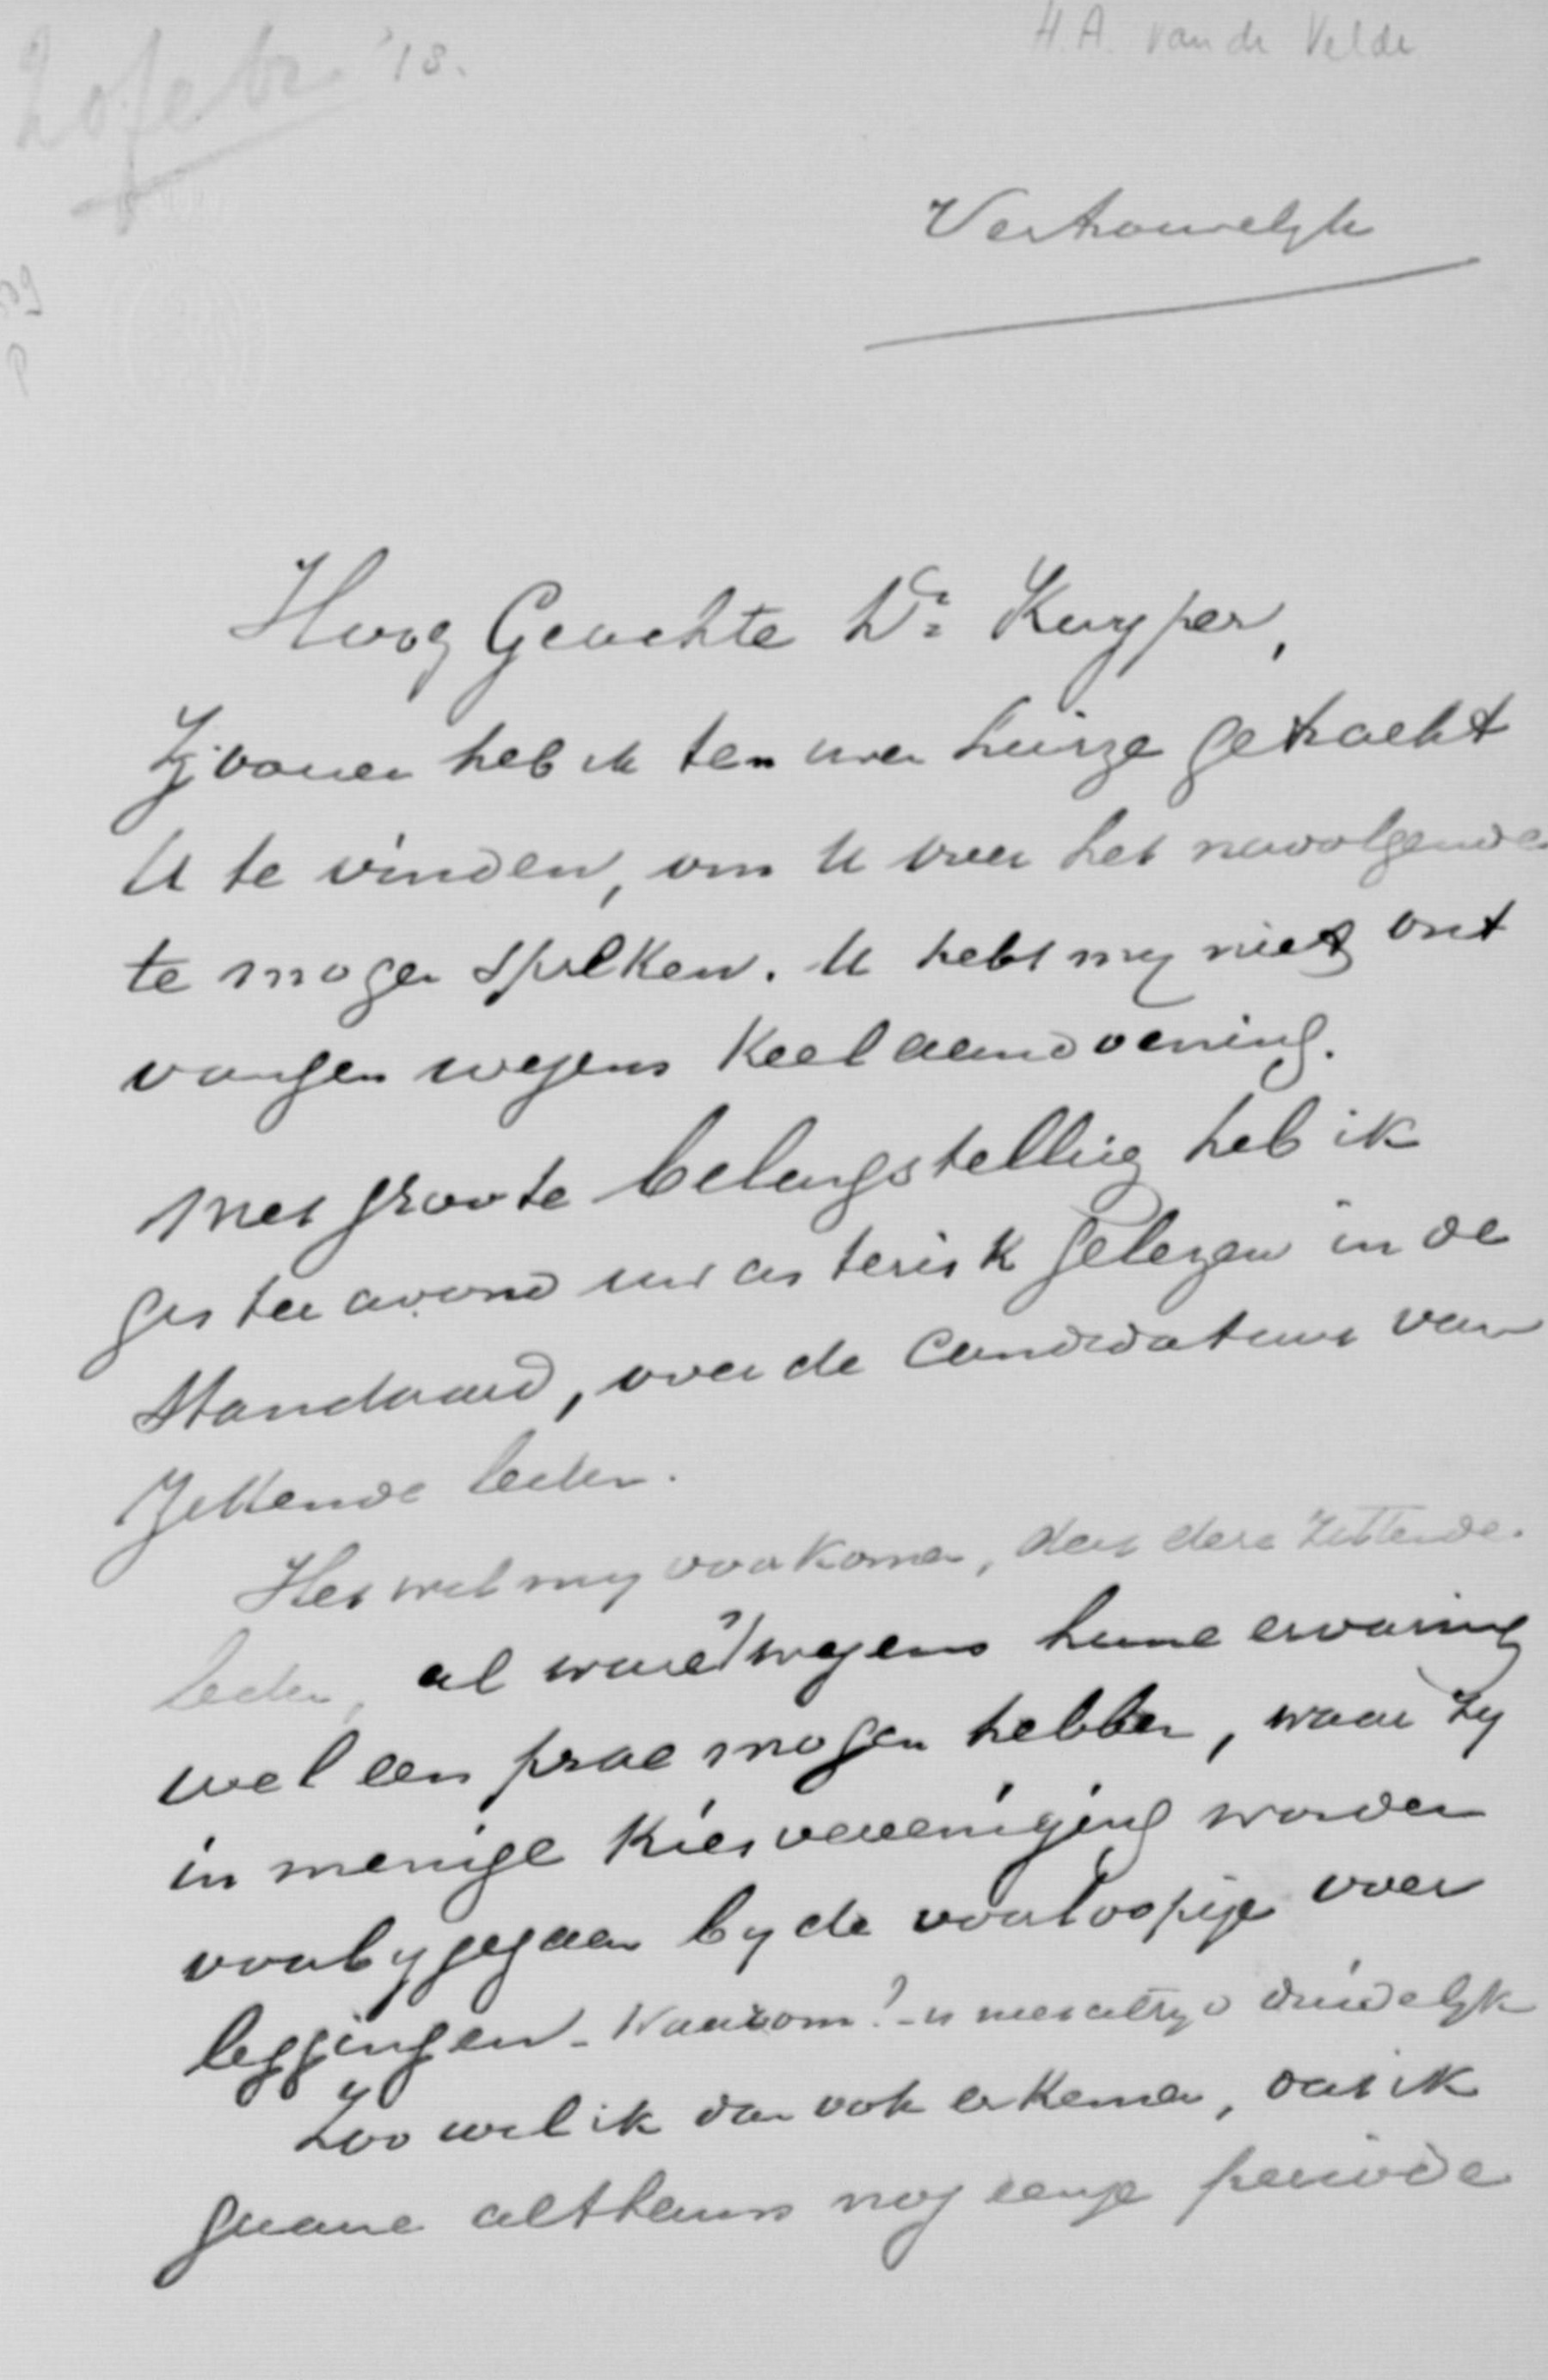 H.A. van de Velde
20 febr. '18.
Vertrouwelyk
Hoog Geachte Dr. Kuyper,
heb ik ten uwen huize getracht
U te vinden, om U over het navolgende
te mogen spreken. U hebt my niet ont
vangen wegens keelaandoening.
Met groote belangstelling heb ik
gister avond uw asterisk gelezen in de
Standaard, over de Candidatuur van
zittende leden.
Het wil my voorkomen, dat deze zittende
leden, al ware 't wegens hunne ervaring
wel een prae mogen hebben, waar zy
in menige Kiesvereeniging worden
voorbygegaan by de voorloopige over
leggingen. Waarom? - is niet altyd duidelyk
Zoo wil ik dan ook erkennen, dat ik
gaarne althans nog eenige periode